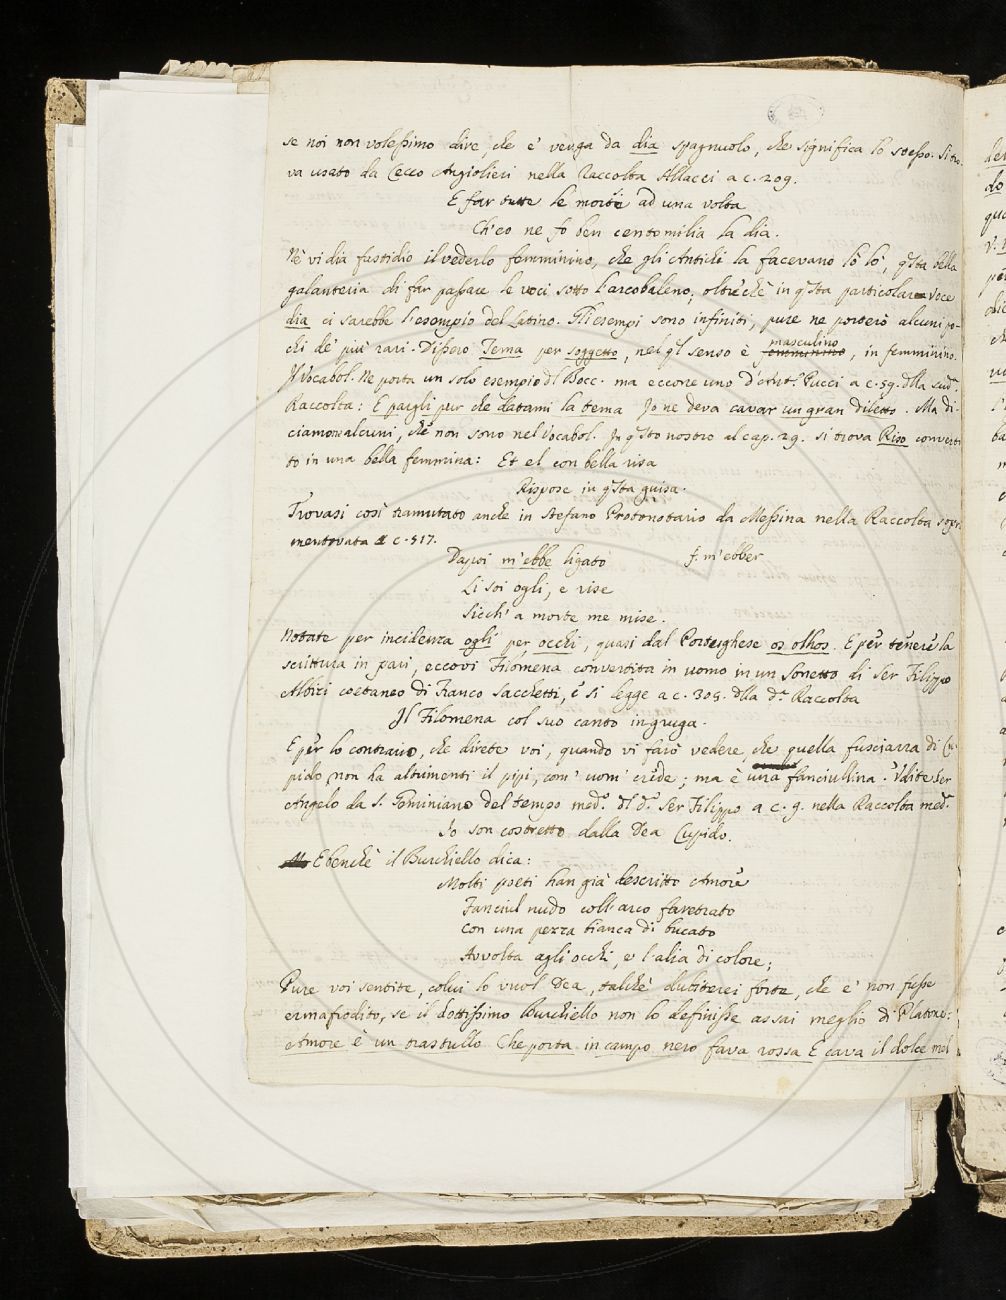 se noi non volessimo dire, che e' venga da dia spagnuolo, che significa lo stesso. Si tro-
va usato da Cecco Angiolieri nella Raccolta Allacci a c. 209.
E far tutte le morti ad una volta
Ch'eo ne fo ben centomilia la dia.
Nè vi dia fastidio il vederlo femminino, che gli Antichi la facevano lò lò, q.sta bella
galanteria di far passare le voci sotto l'arcobaleno; oltrechè in q.sta particolare voce
dia ci sarebbe l'esempio del Latino. Gli esempi sono infiniti, pure ne porterò alcuni po-
chi de' più rari. Dissero Tema per soggetto, nel q.l senso è masculino, in femminino.
Il Vocabol. Ne porta un solo esempio d.l Bocc. ma eccone uno d'Ant.o Pucci a c. 59. d.lla sud.a
Raccolta: E pargli pur che datami la tema Io ne deva cavar un gran diletto. Ma di-
ciamone alcuni, che non sono nel Vocabol. In q.sto nostro al cap. 29. si trova Riso converti-
to in una bella femmina: Et el con bella risa
Rispose in q.sta guisa.
Trovasi così tramutato anche in Stefano Protonotario da Messina nella Raccolta sopra
mentovata a c. 517.
Dapoi m'ebbe ligato f. m'ebber
Li soi ogli, e rise
Sicch' a morte me mise.
Notate per incidenza ogli per occhi, quasi dal Porteghese os olhos. E per tenere la
scrittura in pari, eccovi Filomena convertita in uomo in un Sonetto di Ser Filippo
Albizi coetaneo di Franco Sacchetti, e si legge a c. 305. d.lla d.a Raccolta
Il Filomena col suo canto in gruga.
E per lo contrario, che direte voi, quando vi farò vedere, che quella fusciarra di Cu-
pido non ha altrimenti il pipi, com' uom crede; ma è una fanciullina. Udite Ser
Angelo da S. Geminiano del tempo med.o d.l d.o Ser Filippo a c. 9. nella Raccolta med.a
Io son costretto dalla Dea Cupido.
E benchè il Burchiello dica:
Molti poeti han già descritto Amore
Fanciul nudo coll'arco faretrato
Con una pezza bianca di bucato
Avvolta agli occhi, e l'alia di colore;
Pure voi sentite, colui lo vuol Dea, talchè dubiterei forte, che e' non fusse
ermafrodito, se il dottissimo Burchiello non lo definisse assai meglio di Platone:
Amore è un trastullo Che porta in campo nero fava rossa E cava il dolce mel